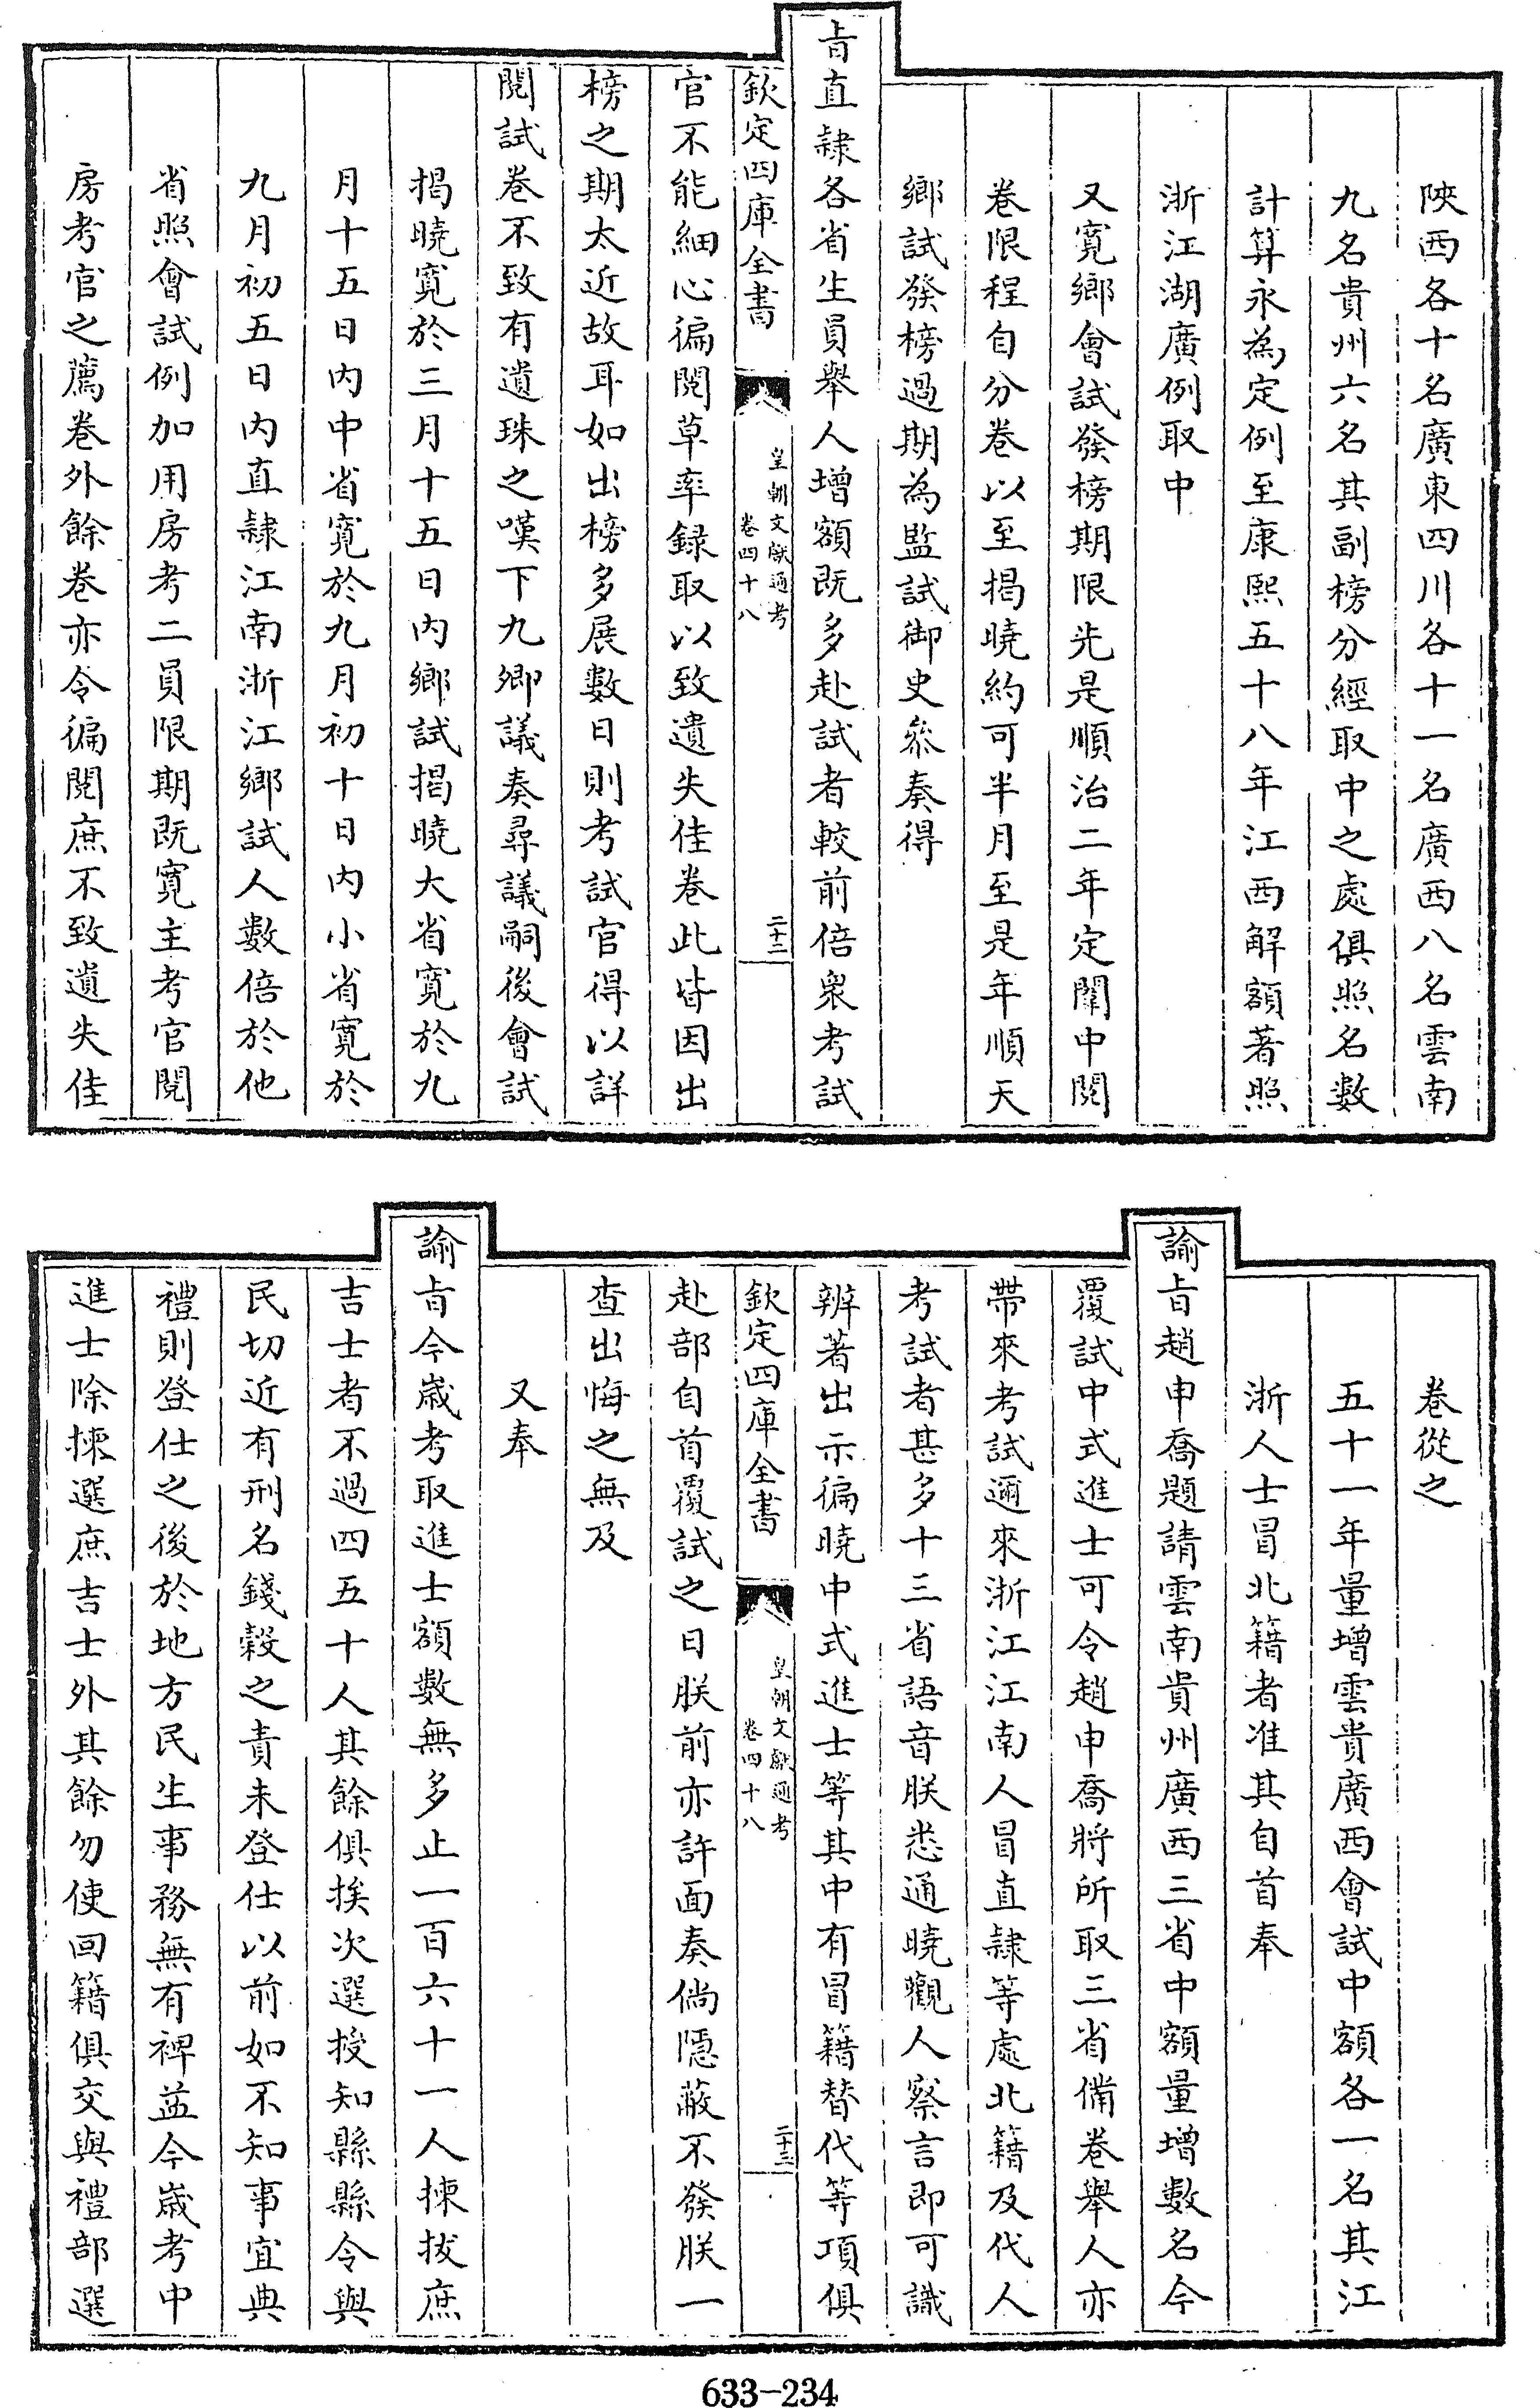 陜西各十名廣東四川各十一名廣西八名雲南
九名貴州六名其副榜分經取中之處俱照名數
計算永為定例至康熙五十八年江西解額著照
浙江湖廣例取中
又寛鄉會試發榜期限先是順治二年定闈中閱
卷限程自分卷以至揭曉約可半月至是年順天
鄉試發榜過期為監試御史叅奏得
㫖直隷各省生員舉人增額既多赴試者較前倍衆考試
欽定四庫全書
皇朝文獻通考
卷四十八
二十二
官不能細心徧閱草率録取以致遺失佳卷此皆因出
榜之期太近故耳如出榜多展數日則考試官得以詳
閱試卷不致有遺珠之嘆下九卿議奏尋議嗣後會試
揭曉寛於三月十五日内鄉試揭曉大省寛於九
月十五日内中省寛於九月初十日内小省寛於
九月初五日内直隷江南浙江鄉試人數倍於他
省照會試例加用房考二員限期既寛主考官閱
房考官之薦卷外餘卷亦令徧閱庶不致遺失佳
卷從之
五十一年量增雲貴廣西會試中額各一名其江
浙人士冒北籍者准其自首奉
諭㫖趙申喬題請雲南貴州廣西三省中額量增數名今
覆試中式進士可令趙申喬將所取三省備卷舉人亦
帶來考試邇來浙江江南人冒直隷等處北籍及代人
考試者甚多十三省語音朕悉通曉觀人察言即可識
辨著出示徧曉中式進士等其中有冒籍替代等項俱
欽定四庫全書
皇朝文獻通考
卷四十八
二十三
赴部自首覆試之日朕前亦許面奏倘隱蔽不發朕一
查出悔之無及
又奉
諭㫖今歳考取進士額數無多止一百六十一人揀拔庶
吉士者不過四五十人其餘俱挨次選授知縣縣令與
民切近有刑名錢穀之責未登仕以前如不知事宜典
禮則登仕之後於地方民生事務無有裨益今歳考中
進士除揀選庶吉士外其餘勿使回籍俱交與禮部選
633-234